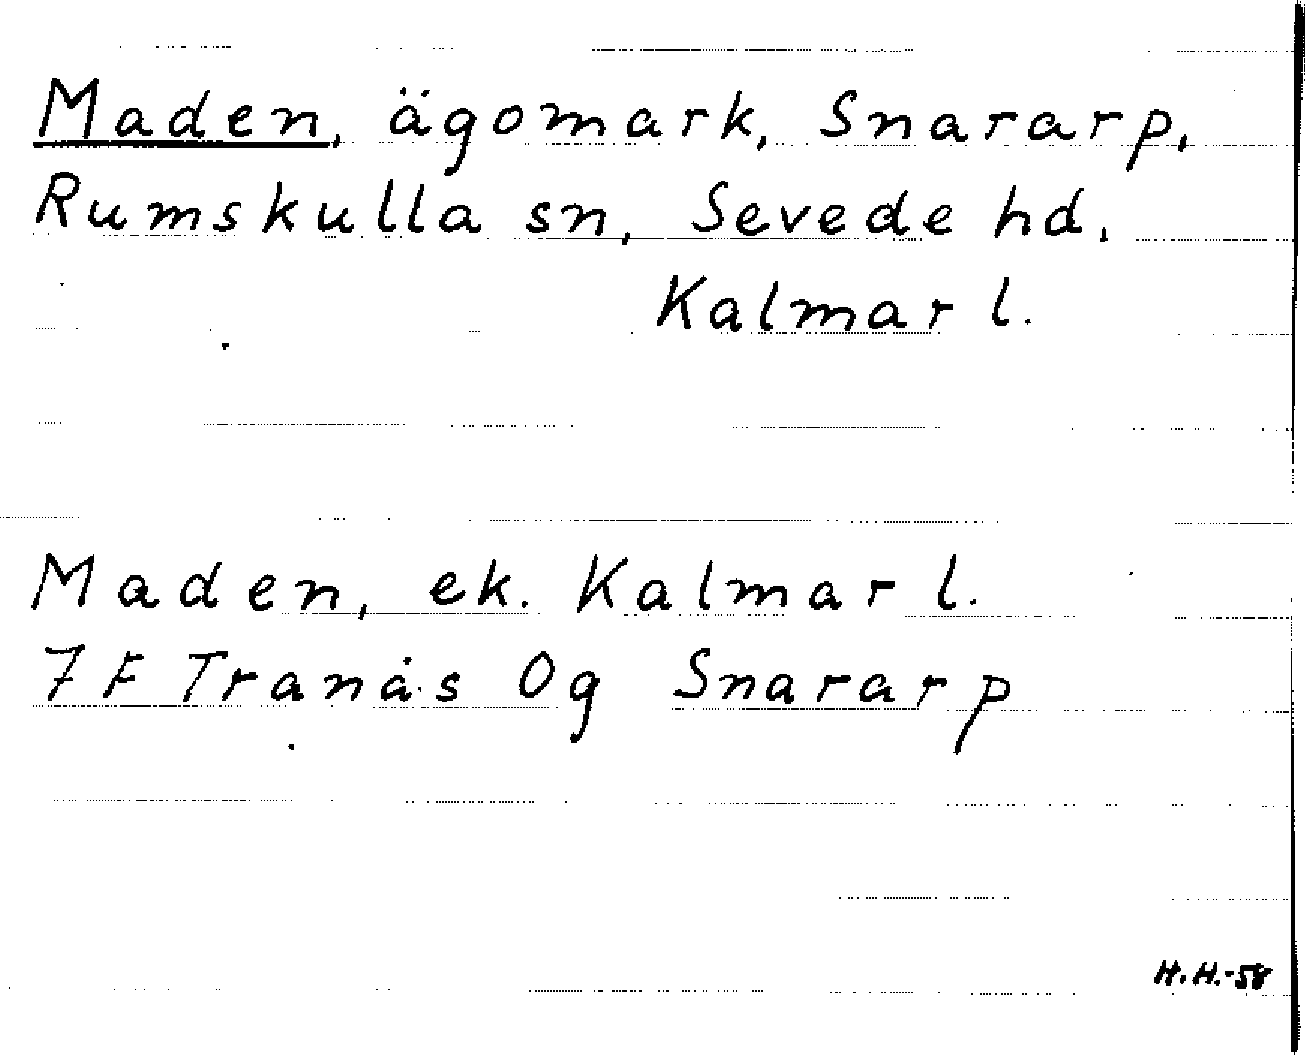 Maden, ägomark, Snararp,
Rumskulla sn, Sevede hd,
Kalmar l.
Maden, ek. Kalmar l.
7F Tranås 0g Snararp
H.H.-58